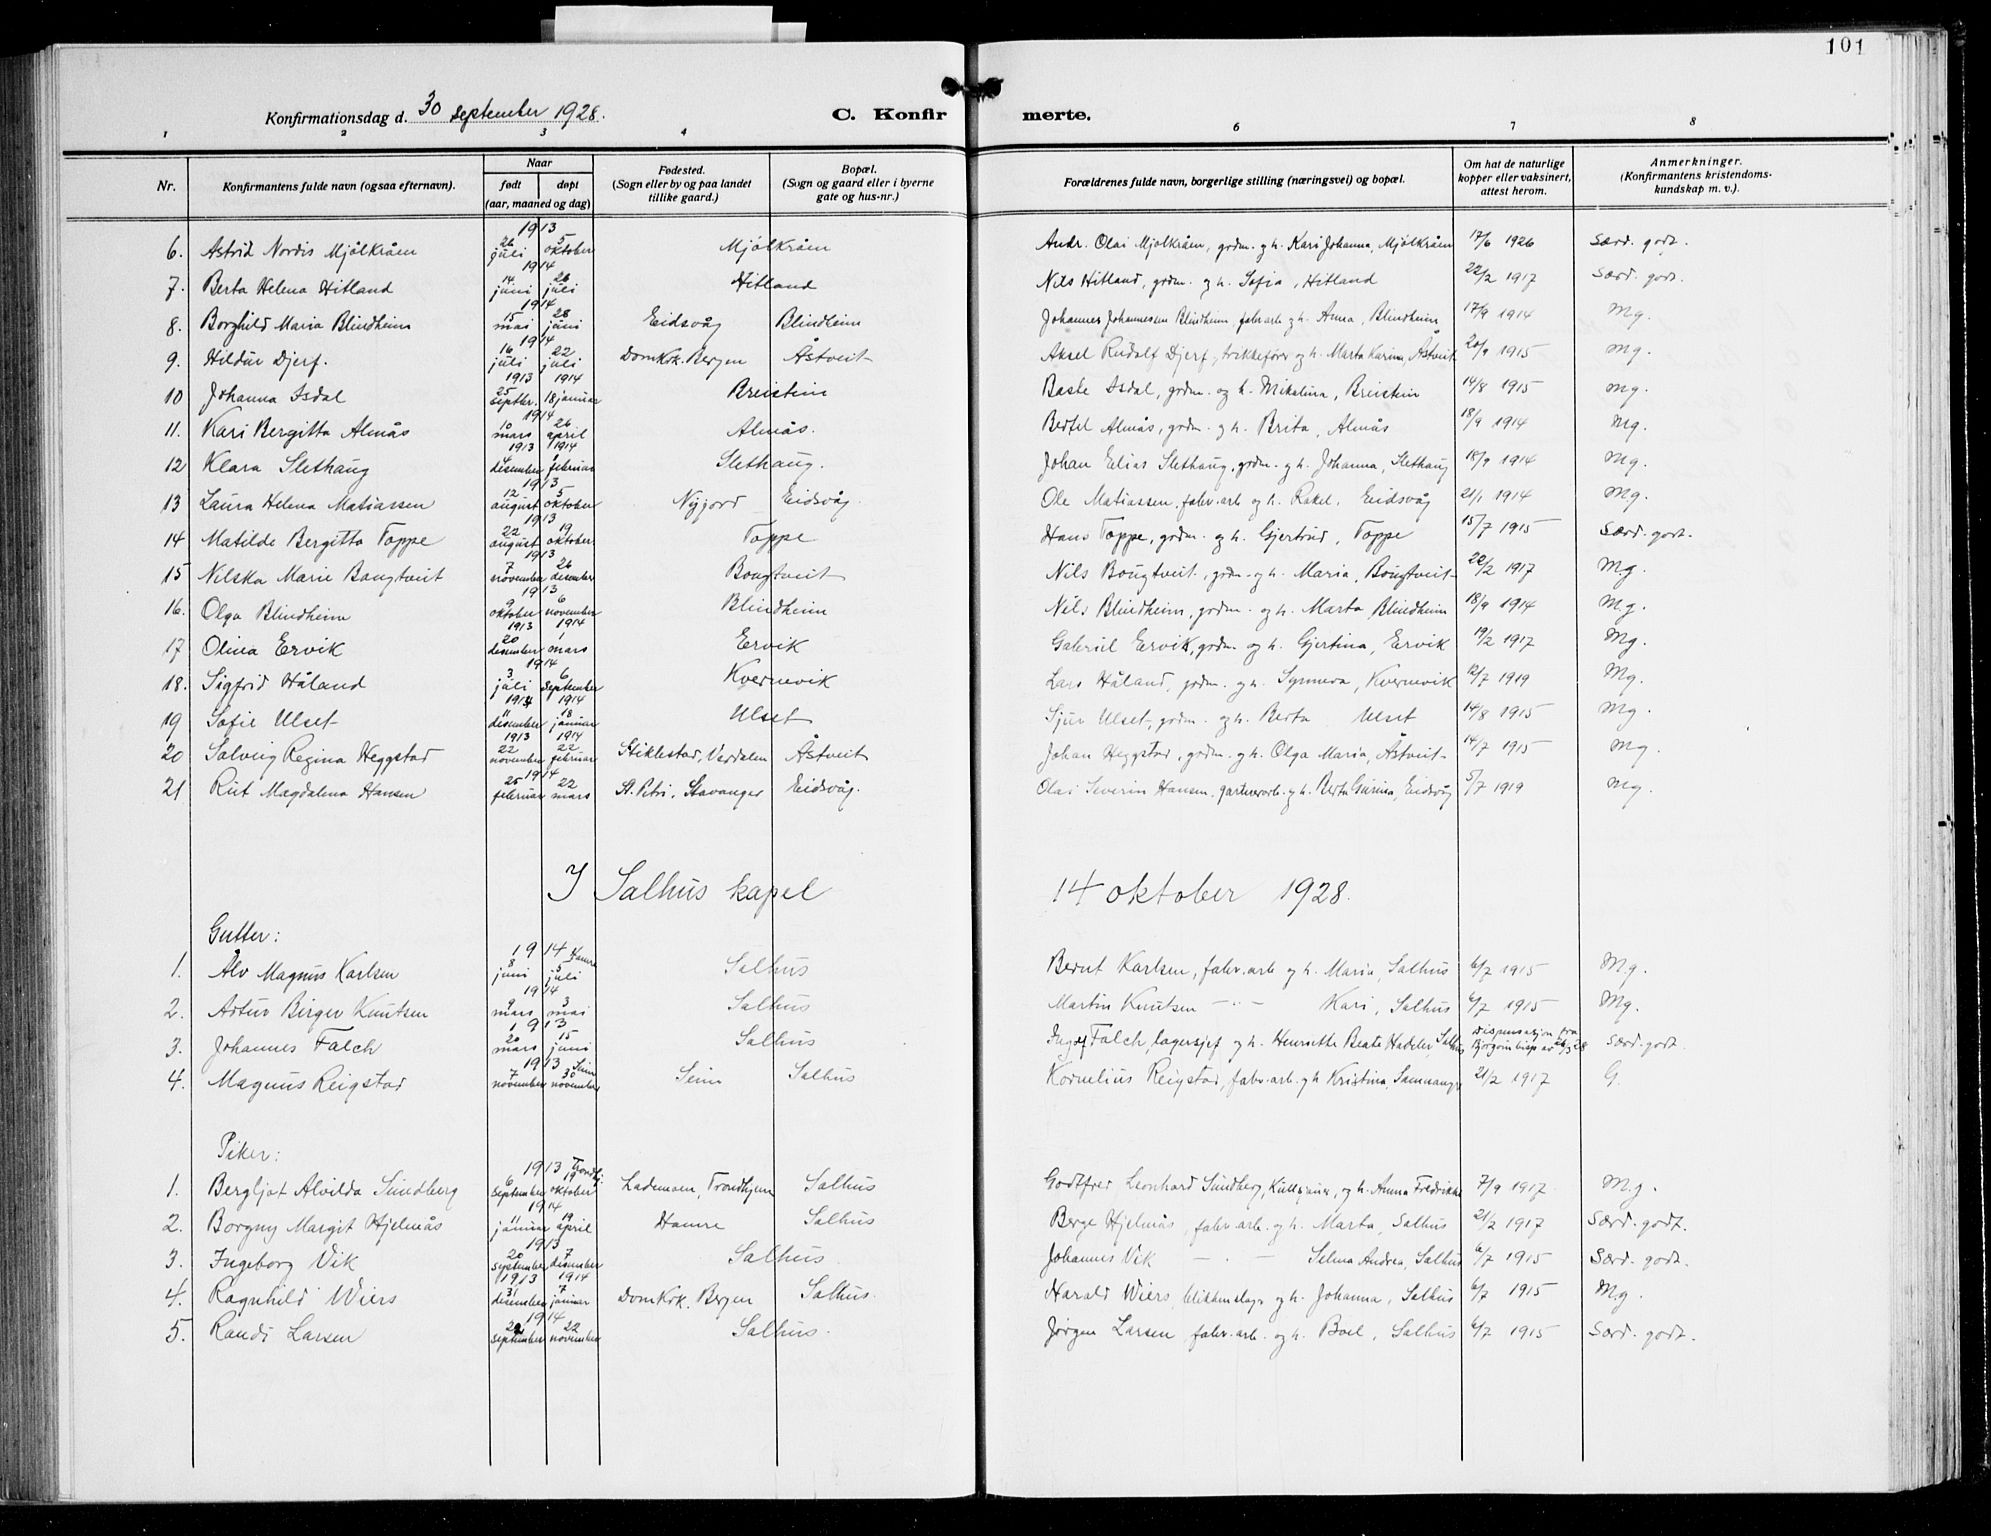 101
Konfirmationsdag d. 30 september 1928. C. Konfirmerte.
1 2 3 4 6 7 8
Nr. Konfirmantens fulde navn (ogsaa efternavn). Naar født døpt (aar, maaned og dag) Fødested. (Sogn eller by og paa landet tillike gaard.) Bopæl. (Sogn og gaard eller i byerne gate og hus-nr.) Forældrenes fulde navn, borgerlige stilling (næringsvei) og bopæl. Om hat de naturlige kopper eller vaksinert, attest herom. Anmerkninger. (Konfirmantens kristendomskundskap m. v.).
6. Astrid Nordis Mjølkråen 1913 26 juli 5 oktober Mjølkråen Andr. Olai Mjølkråen, grdm. og h. Kari Johanna, Mjølkråen 17/6 1926 Særd. godt.
7. Berta Helena Hitland 1914 14 juni 26 juli Hitland Nils Hitland, grdm. og h. Sofia, Hitland 22/2 1917 Særd. godt.
8. Borghild Maria Blindheim 1914 15 mai 28 juni Eidsvåg Blindheim Johannes Johannessen Blindheim, fabr.arb. og h. Anna, Blindheim 17/9 1914 Mg.
9. Hildur Djerf. 1914 16 juli 22 juli Domkrk. Bergen Åstveit Aksel Rudolf Djerf, trikkefører og h. Marta Karina, Åstveit 20/9 1915 Mg.
10 Johanna Isdal 1913 25 septbr. 1914 18 januar Breistein Baste Isdal, grdm. og h. Mikalina, Breistein 14/8 1915 Mg.
11. Kari Bergitta Almås 1914 10 mars 26 april Almås. Bertel Almås, grdm. og h. Brita, Almås 18/9 1914 Mg.
12 Klara Slethaug 1913 4 desember 1914 februar Slethaug. Johan Elias Slethaug, grdm. og h. Johanna, Slethaug 18/9 1914 Mg.
13 Laura Helena Matiassen 1913 12 august 5 oktober Nygård Eidsvåg Ole Matiassen, fabr.arb og h. Rakel, Eidsvåg 21/1 1914 Mg.
14 Matilde Bergitta Toppe 1913 22 august 19 oktober Toppe Hans Toppe, grdm. og h. Gjertrud, Toppe 15/7 1915 Særd. godt.
15 Nilska Marie Bougtveit 1913 7 november 26 desember Bougtveit Nils Bougtveit, grdm. og h. Maria, Bougtveit 22/2 1917 Mg.
16. Olga Blindheim 1913 9 oktober 6 november Blindheim Nils Blindheim, grdm. og h. Marta Blindheim 18/9 1914 M.g.
17 Olina Ervik 1913 20 desember 1914 1 mars Ervik Gabriel Ervik, grdm. og h. Gjertina, Ervik 19/2 1917 Mg.
18. Sigfrid Håland 1914 3 juli 6 september Kvernevik Lars Håland, grdm. og h. Synneva, Kvernevik 12/7 1919 Mg.
19 Sofie Ulset 1913 11 desember 1914 18 januar Ulset Sjur Ulset, grdm. og h. Berta Ulset 14/8 1915 Mg.
20 Solveig Regina Heggstad 1913 22 november 1914 22 februar Stiklestad, Verdalen Åstveit Johan Heggstad, grdm. og h. Olga Maria, Åstveit 14/7 1915 Mg.
21 Rut Magdalena Hansen 1914 25 februar 22 mars St. Petri, Stavanger Eidsvåg. Olai Severin Hansen, gartnerarb. og h. Berta Gurina, Eidsvåg 5/7 1919 Mg.
I Salhus kapel 14 oktober 1928.
Gutter:
1. Alv Magnus Karlsen 1914 8 juni 5 juli Hamre Salhus Bernt Karlsen, fabr.arb og h. Maria, Salhus 6/7 1915 Mg.
2. Artur Birger Knutsen 1914 9 mars 3 mai Salhus Martin Knutsen - " - Kari, Salhus 6/7 1915 Mg.
3. Johannes Falch 1913 20 mars 15 juni Salhus Falch, lagersjef og h. Henriette Beate Hadeler Salhus Dispensasjon fra Bjørgvin bisp av 26/3 28 Særd. godt.
4. Magnus Reigstad 1913 7 november 30 november Seim Seim Salhus Kornelius Reigstad, fabr.arb. og h Kristina, Samnanger 21/2 1917 G.
Piker:
1. Bergljot Alvilda Sundberg 1913 6 september 19 oktober Trondhj. Lademoen, Trondhjem Salhus Godtfred Leonhard Sundberg, og h. Anna Fredrikke 7/9 1917 M.g.
2. Borgny Margit Hjelmås 1914 11 januar 19 april Hamre Salhus Berge Hjelmås, fabr.arb. og h. Marta, Salhus 21/2 1917 Særd. godt.
3. Ingeborg Vik 1913 20 september 7 desember Salhus Johannes Vik - - Selma Andrea, Salhus 6/7 1915 Særd. godt.
4. Ragnhild Wiers 1913 31 desember 1914 7 januar Domkrk. Bergen Salhus. Harald Wiers, blikkenslager og h. Johanna, Salhus 6/7 1915 Mg.
5. Randi Larsen 1914 september 22 november Salhus. Jørgen Larsen fabr.arb. og h. Boel, Salhus 6/7 1915 Særd. godt.